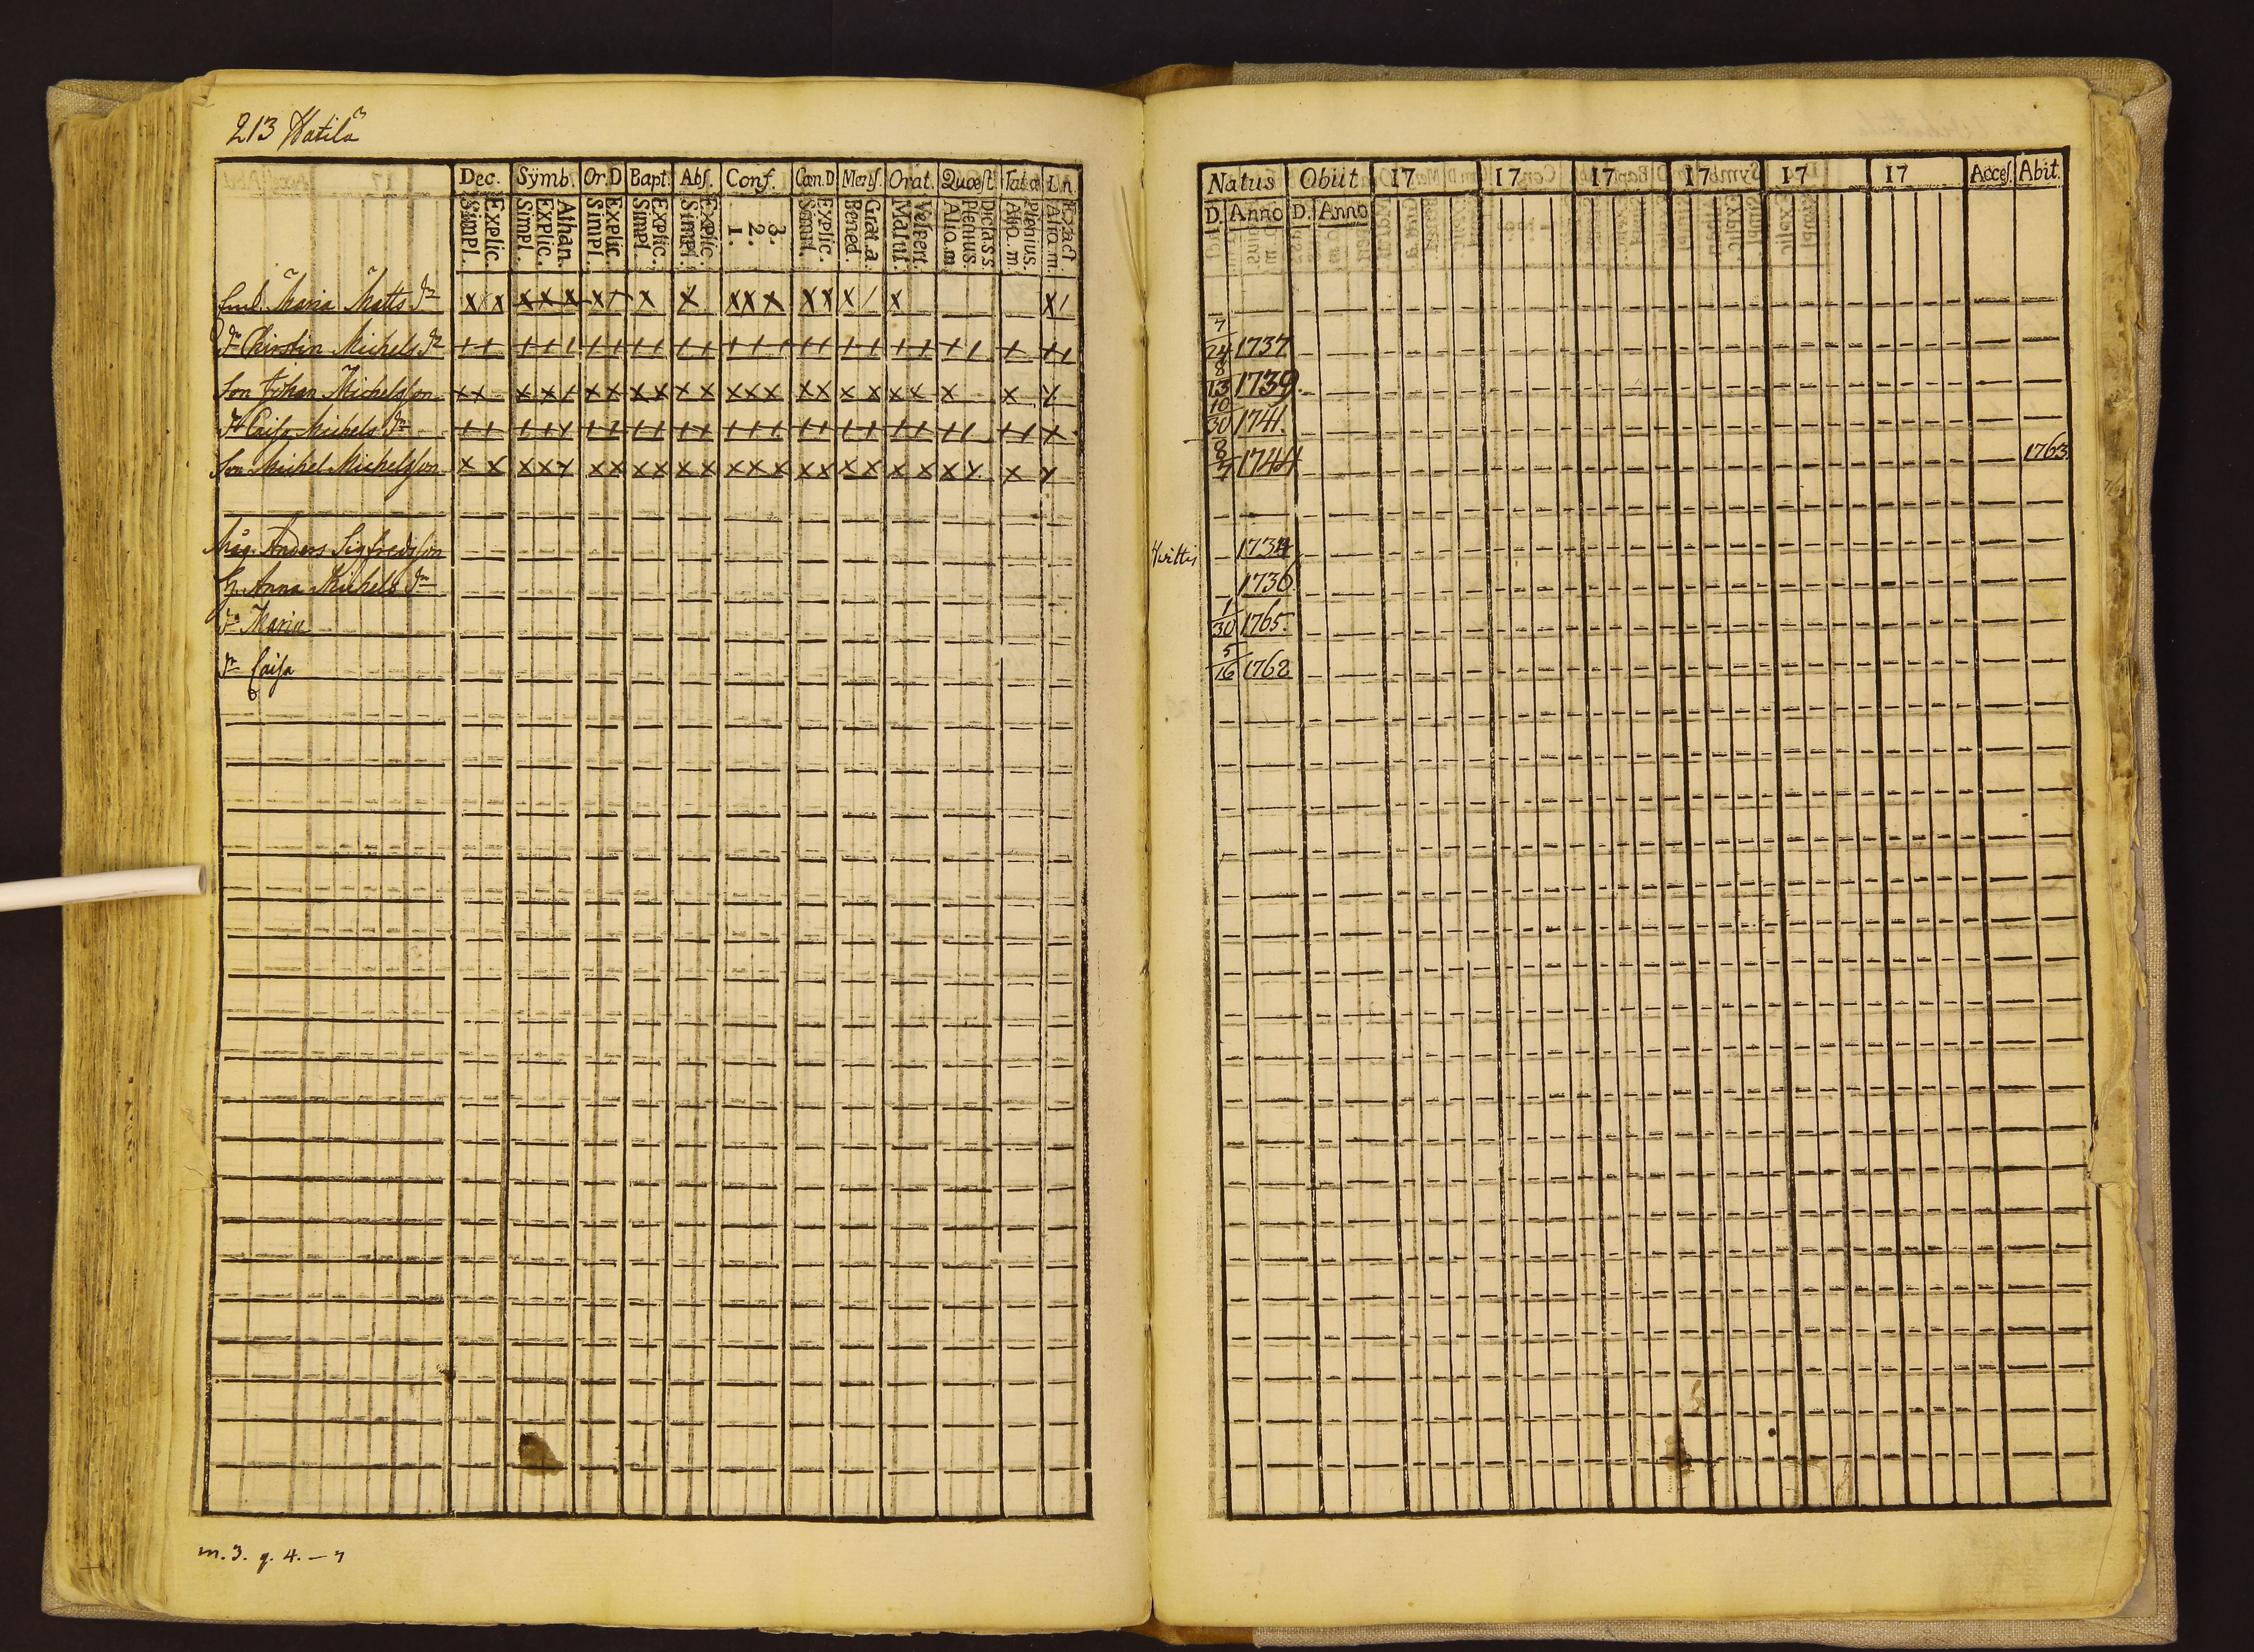 213 Hatila
Dec. Sÿmb. Or.D Bapt. Abs. Conf. Can.D Mens. Orat. Quæst. Tab.æ Ln.
Simpl. Explic. Simpl. Explic. Athan. Simpl. Explic. Simpl. Explic. Simpl. Explic. 1. 2. 3. Simpl. Explic. Bened. Grat.a. Matut. Vespert. Alio. m. Plenius. Dicta.s.s Alio. m. Plenius. Alio. m. Exact
Natus Obiit 17 17 17 17 17 17 Acces. Abit.
D. Anno D. Anno
Enk. Maria Matts dr
dr Christin Michels dr 7/24 1737
Son Johan Michelsson 8/13 1739.
dr Caisa Michels dr 10/30 1741.
Son Michel Michelsson 8/7 1744 1763.
Måg. Anders Sigfredsson Hvittis 1734
H. Anna Michels dr 1736.
dr Maria 1/30 1765.
dr Caisa 5/16 1762
m. 3. q. 4. — 7